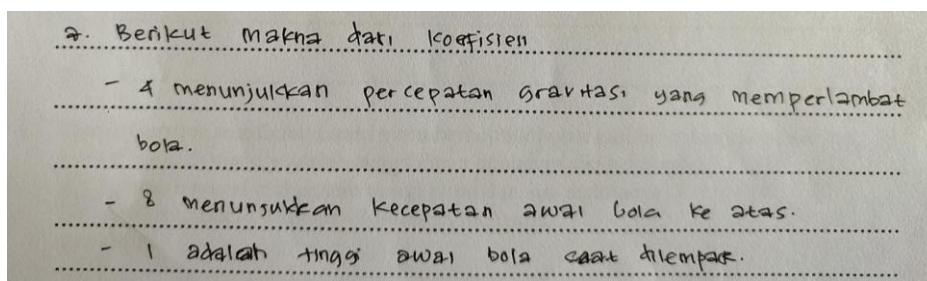 a. Berikut makna dari koefisien
- 4 menunjukkan percepatan gravitasi yang memperlambat
bola.
- 8 menunjukkan kecepatan awal bola ke atas.
- 1 adalah tinggi awal bola saat dilempar.